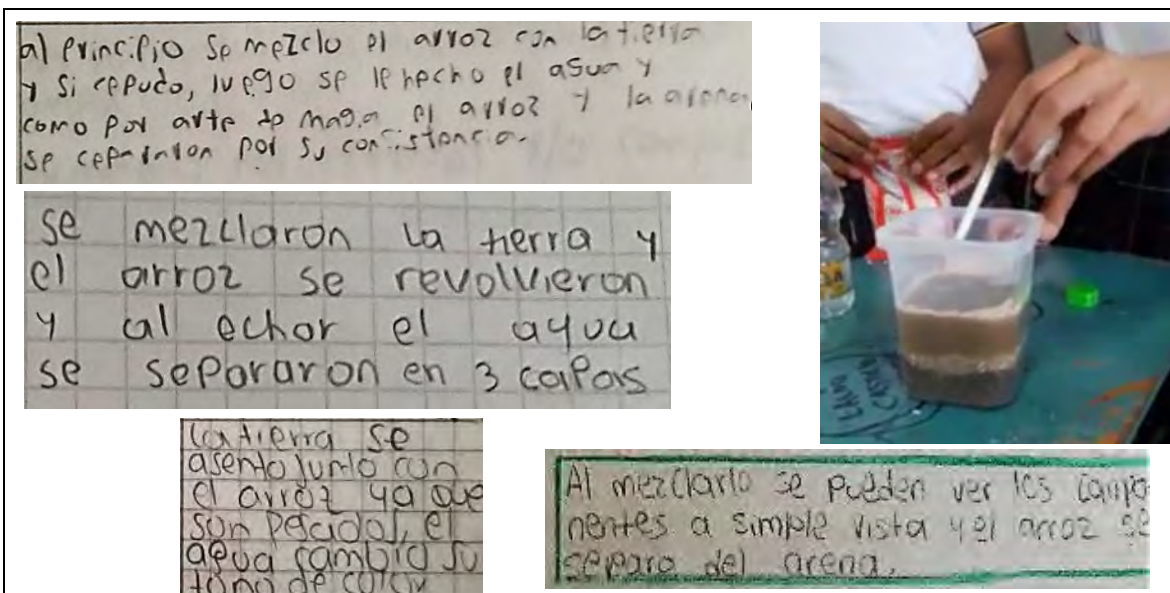 al principio se mezclo el arroz con la tierra
y si cepudo, luego se le hecho el agua y
como por arte de magia el arroz y la arena
se ceparaton por su consistencia.
se mezclaron la tierra y
el arroz se revolvieron
y al echar el agua
se separaron en 3 capas
la tierra se
asento junto con
el arroz ya que
son pecidos, el
agua cambio su
tono de color
Al mezclarlo se pueden ver los campo
nentes a simple vista y el arroz se
separo del arena.
LALO